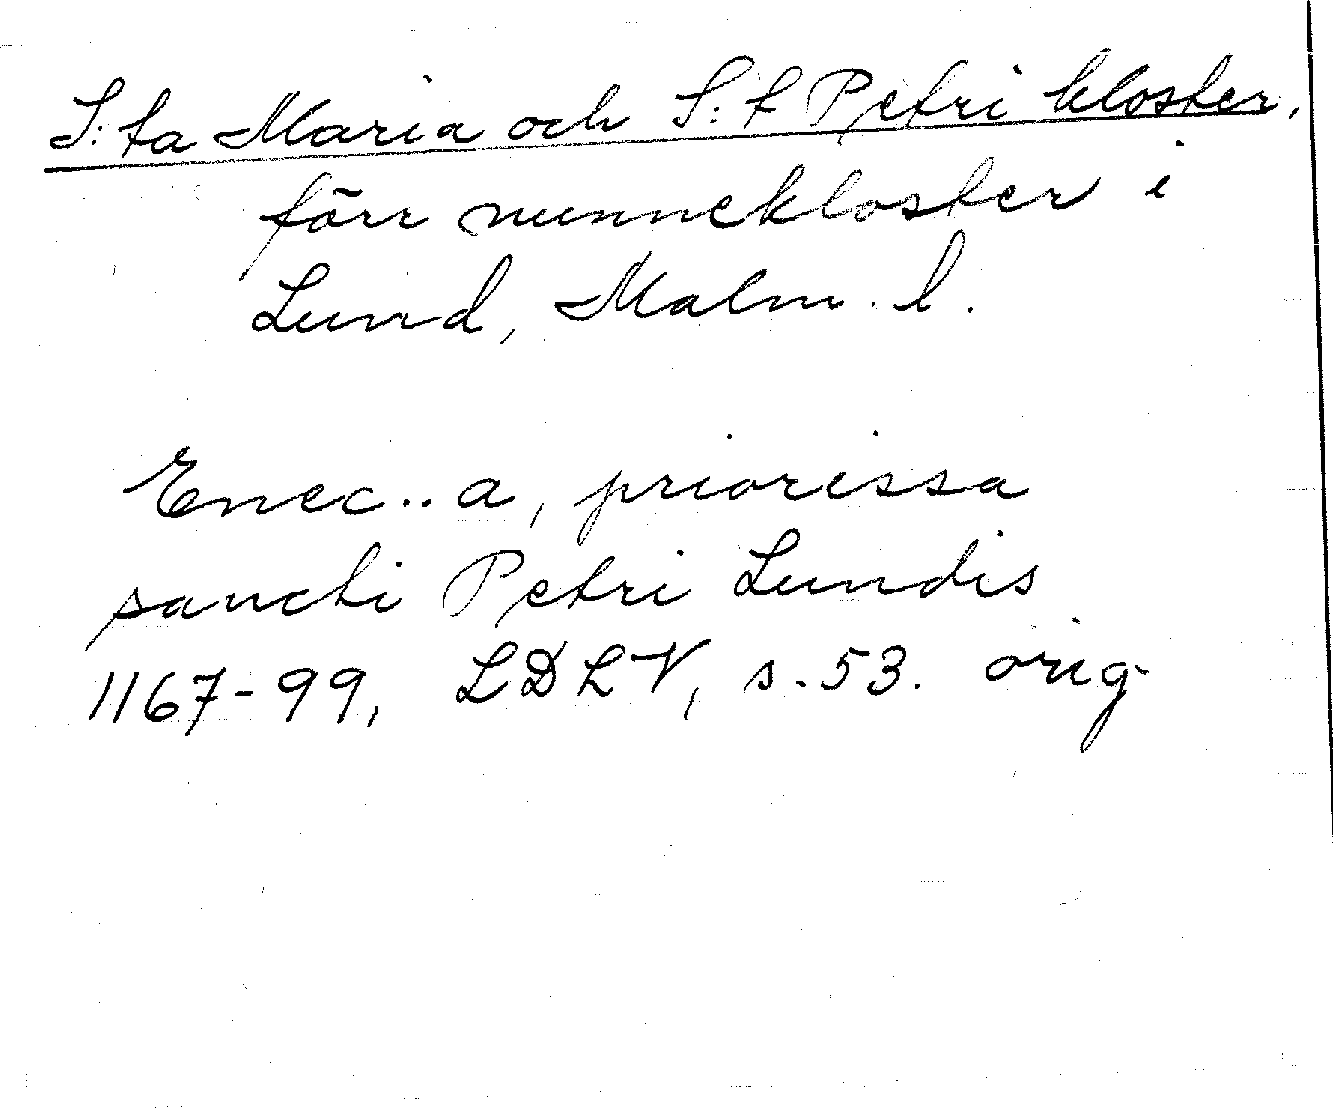 S:ta Maria och S:t Petri kloster,
förr nunnekloster i
Lund, Malm. l.
Enec..a, priorissa
sancti Petri Lundis
1167-99, LDLV, s. 53. orig